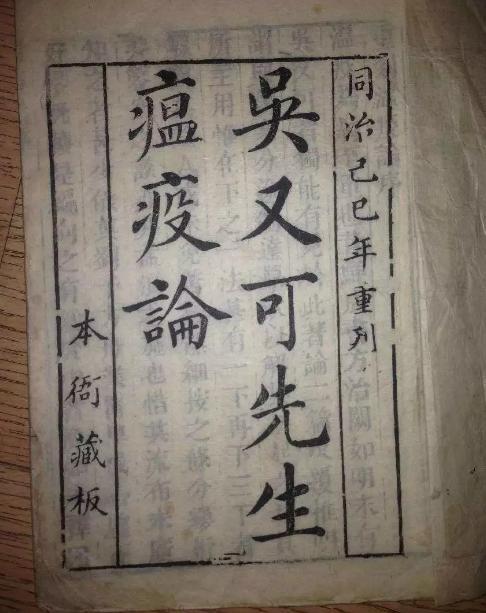 同治己巳年重刋
吳又可先生
瘟疫論
本衙藏板